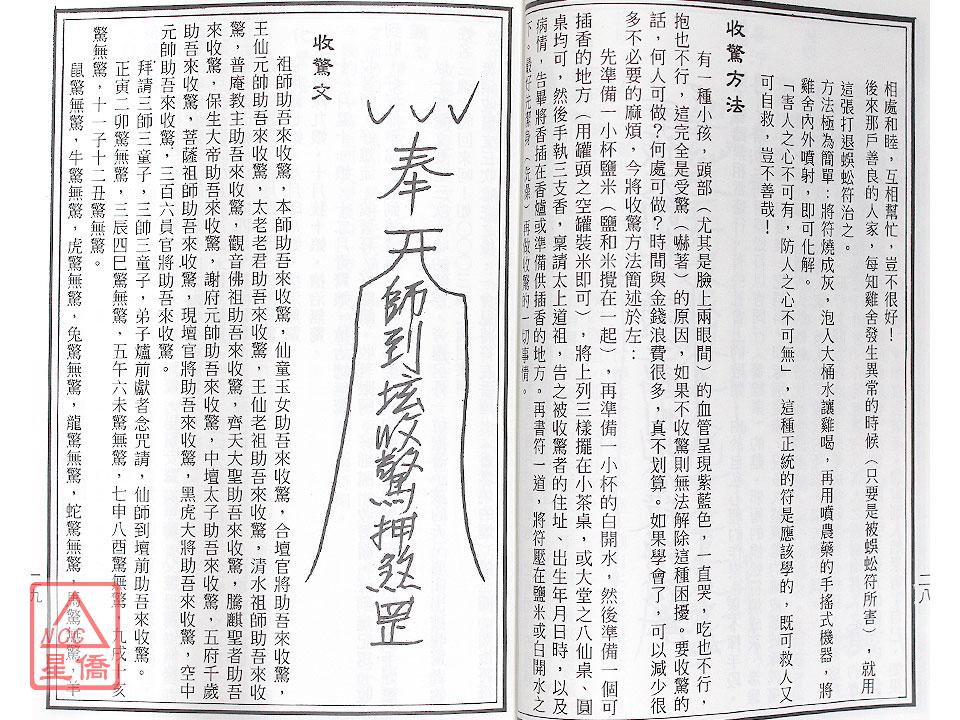 相處和睦，互相幫忙，豈不很好！
後來那戶善良的人家，每知雞舍發生異常的時候（只要是被蜈蚣符所害），就用
這張打退蜈蚣符治之。
方法極為簡單：將符燒成灰，泡入大桶水讓雞喝，再用噴農藥的手搖式機器，將
雞舍內外噴射，即可化解。
「害人之心不可有，防人之心不可無」，這種正統的符是應該學的，既可救人又
可自救，豈不善哉！
收驚方法
有一種小孩，頭部（尤其是臉上兩眼間）的血管呈現紫藍色，一直哭，吃也不行，
抱也不行，這完全是受驚（嚇著）的原因，如果不收驚則無法解除這種困擾。要收驚的
話，何人可做？何處可做？時間與金錢浪費很多，真不划算。如果學會了，可以減少很
多不必要的麻煩，今將收驚方法簡述於左：
先準備一小杯鹽米（鹽和米攪在一起），再準備一小杯的白開水，然後準備一個可
插香的地方（用罐頭之空罐裝米即可），將上列三樣擺在小茶桌，或大堂之八仙桌、圓
桌均可，然後手執三支香，稟請太上道祖，告之被收驚者的住址、出生年月日時，以及
病情，告畢將香插在香爐或準備供插香的地方。再書符一道，將符壓在鹽米或白開水之
下。最好先潔身（洗澡）再做收驚的一切事情。
二八
奉
師到壇收驚押煞罡
收驚文
祖師助吾來收驚，本師助吾來收驚，仙童玉女助吾來收驚，合壇官將助吾來收驚，
王仙元帥助吾來收驚，太老老君助吾來收驚，王仙老祖助吾來收驚，清水祖師助吾來收
驚，普庵教主助吾來收驚，觀音佛祖助吾來收驚，齊天大聖助吾來收驚，騰麒聖者助吾
來收驚，保生大帝助吾來收驚，謝府元帥助吾來收驚，中壇太子助吾來收驚，五府千歲
助吾來收驚，菩薩祖師助吾來收驚，現壇官將助吾來收驚，黑虎大將助吾來收驚，空中
元帥助吾來收驚，三百六員官將助吾來收驚。
拜請三師三童子，三師三童子，弟子爐前獻者念咒請，仙師到壇前助吾來收驚。
正寅二卯驚無驚，三辰四巳驚無驚，五午六未驚無驚，七申八酉驚無驚，九戌十亥
驚無驚，十一子十二丑驚無驚。
鼠驚無驚，牛驚無驚，虎驚無驚，兔驚無驚，龍驚無驚，蛇驚無驚，馬驚無驚，羊
一九
NCS
星僑